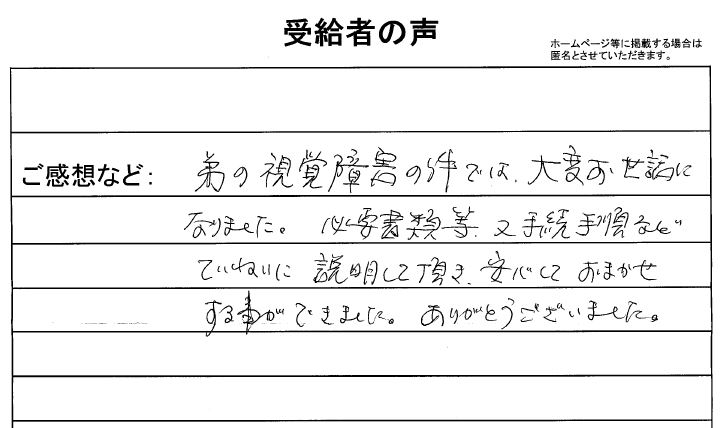 受給者の声
ホームページ等に掲載する場合は
匿名とさせていただきます。
ご感想など： 弟の視覚障害の件では、大変お世話に
なりました。 必要書類等、又手続手順など
ていねいに説明して頂き、安心しておまかせ
する事ができました。ありがとうございました。